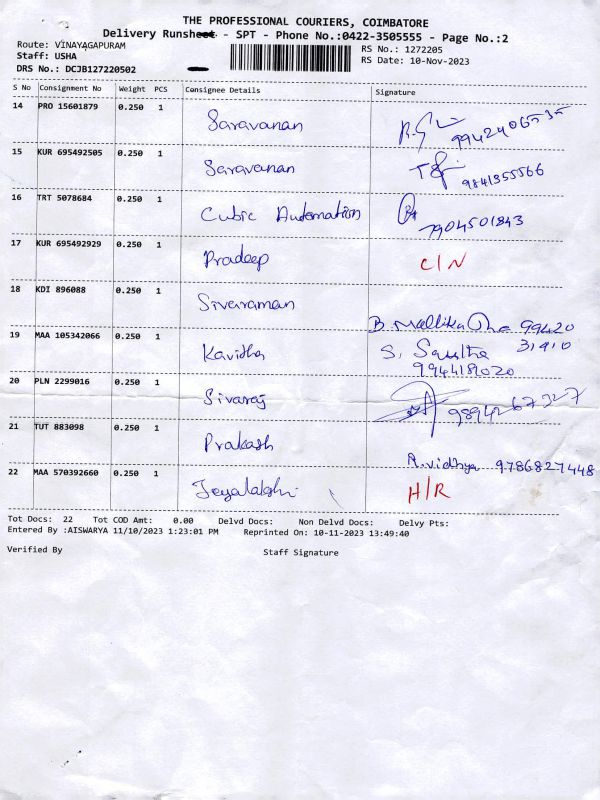 THE PROFESSIONAL COURIERS, COIMBATORE
Delivery Runsheet - SPT - Phone No.:0422-3505555 - Page No.:2
Route: VINAYAGAPURAM
RS No.: 1272205
Staff: USHA
RS Date: 10-Nov-2023
DRS No.: DCJB127220502
S No Consignment No Weight PCS Consignee Details Signature
14 PRO 15601879 0.250 1 Saravanan
15 KUR 695492505 0.250 1 Saravanan 9841355566
16 TRT 5078684 0.250 1 Cubic Automation 7904501843
17 KUR 695492929 0.250 1 Pradeep C/N
18 KDI 896088 0.250 1 Sivaraman
B. Mallika 99420
19 MAA 105342066 0.250 1 Kavitha S.
9944189020
20 PLN 2299016 0.250 1 Sivaraj
21 TUT 883098 0.250 1 Prakash
A. vidhya 9786827448
22 MAA 570392660 0.250 1 Jeyalakshi H/R
Tot Docs: 22 Tot COD Amt: 0.00 Delvd Docs: Non Delvd Docs: Delvy Pts:
Entered By :AISWARYA 11/10/2023 1:23:01 PM Reprinted On: 10-11-2023 13:49:40
Verified By Staff Signature